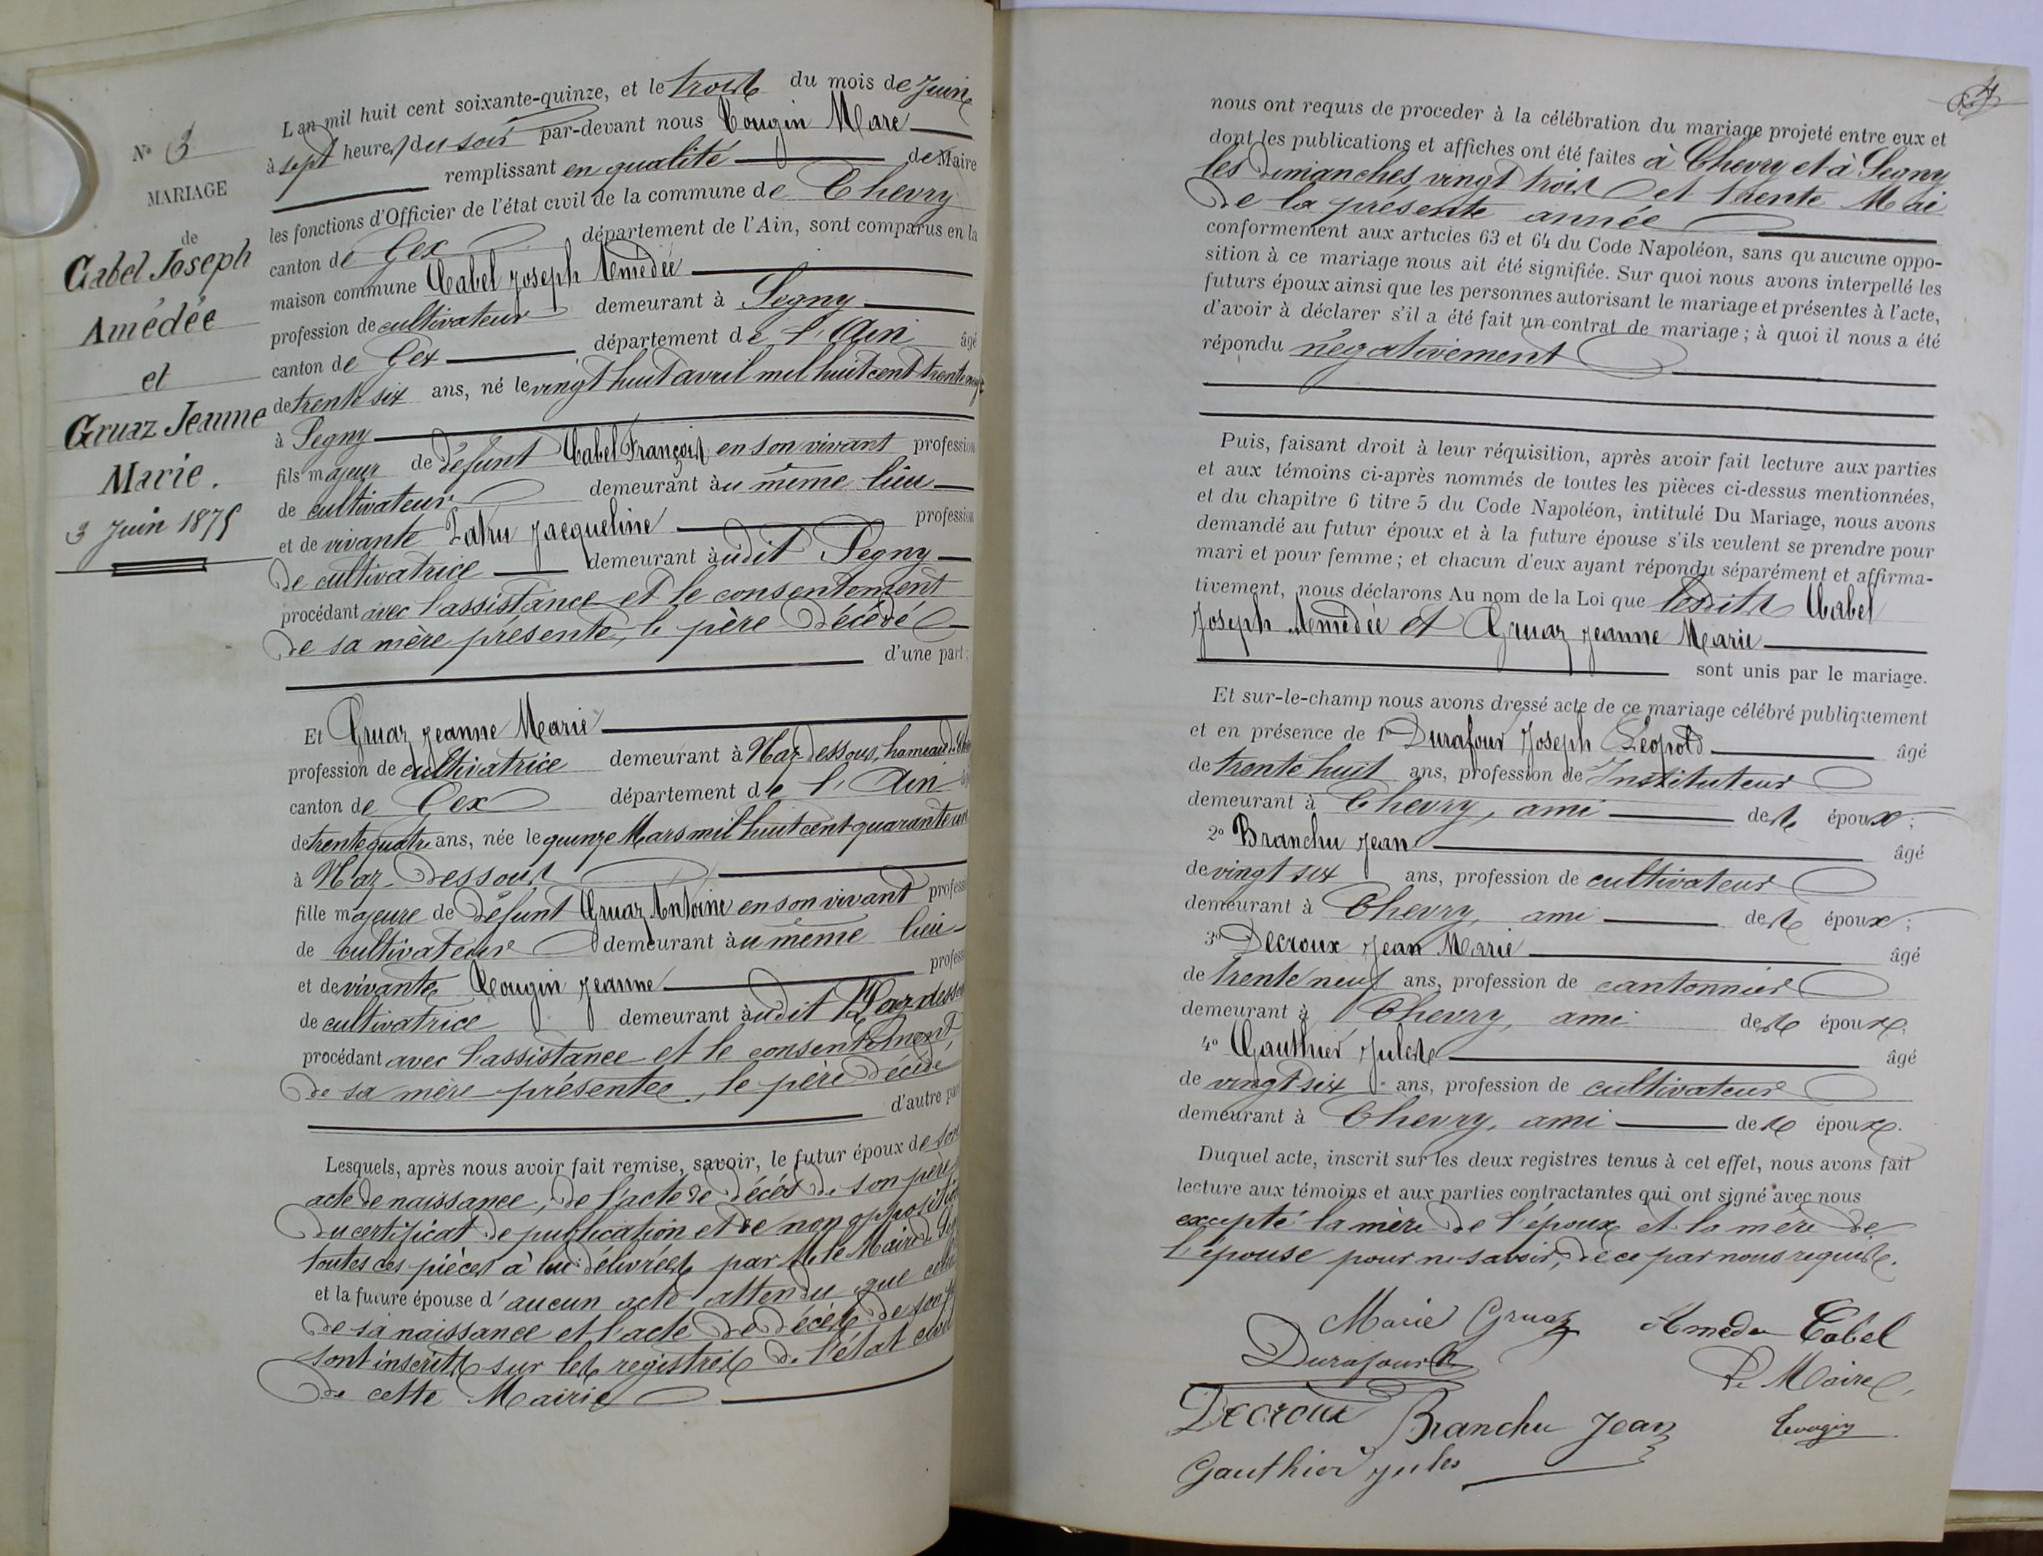 N° 3
MARIAGE
de
Cabel Joseph
Amédée
et
Gruaz Jeanne
Marie.
3 Juin 1875
L'an mil huit cent soixante-quinze, et le trois du mois de Juin
à sept heures du soir par-devant nous Cougin Marc
remplissant en qualité de Maire
les fonctions d'Officier de l'état civil de la commune de Chevry
canton de Gex département de l'Ain, sont comparus en la
maison commune Cabel Joseph Amédée
profession de cultivateur demeurant à Segny
canton de Gex département de l'Ain âgé
de trente six ans, né le vingt huit avril mil huit cent trente neuf
à Segny
fils majeur de défunt Cabel François en son vivant profession
de cultivateur demeurant au même lieu
et de vivante Jacqueline profession
de cultivatrice demeurant audit Segny
procédant avec l'assistance et le consentement
de sa mère présente, le père décédé
d'une part;
Et Gruaz Jeanne Marie
profession de cultivatrice demeurant à Naz-dessous, hameau de
canton de Gex département de l'Ain
de trente quatre ans, née le quinze Mars mil huit cent quarante un
à Naz-dessous
fille majeure de défunt Gruaz Antoine en son vivant profess
de cultivateur demeurant au même lieu
et de vivante Cougin Jeanne profess
de cultivatrice demeurant audit Naz dessous
procédant avec l'assistance et le consentement
de sa mère présente, le père décédé
d'autre part
Lesquels, après nous avoir fait remise, savoir, le futur époux de son
acte de naissance, de l'acte de décès de son père
du certificat de publication et de non opposition
toutes ces pièces à lui délivrées par M. le Maire de
et la future épouse d'aucun acte attendu que celui
de sa naissance et l'acte de décès de son
sont inscrits sur les registres de l'état civil
de cette Mairie
nous ont requis de proceder à la célébration du mariage projeté entre eux et
dont les publications et affiches ont été faites à Chevry et à Segny
les dimanches vingt trois et trente Mai
de la présente année
conformément aux articles 63 et 64 du Code Napoléon, sans qu'aucune oppo-
sition à ce mariage nous ait été signifiée. Sur quoi nous avons interpellé les
futurs époux ainsi que les personnes autorisant le mariage et présentes à l'acte,
d'avoir à déclarer s'il a été fait un contrat de mariage; à quoi il nous a été
répondu négativement
Puis, faisant droit à leur réquisition, après avoir fait lecture aux parties
et aux témoins ci-après nommés de toutes les pièces ci-dessus mentionnées,
et du chapitre 6 titre 5 du Code Napoléon, intitulé Du Mariage, nous avons
demandé au futur époux et à la future épouse s'ils veulent se prendre pour
mari et pour femme; et chacun d'eux ayant répondu séparément et affirma-
tivement, nous déclarons Au nom de la Loi que lesdits Cabel
Joseph Amédée et Gruaz Jeanne Marie
sont unis par le mariage.
Et sur-le-champ nous avons dressé acte de ce mariage célébré publiquement
et en présence de 1° Durafour Joseph Léopold âgé
de trente huit ans, profession de Instituteur
demeurant à Chevry, ami des époux;
2° Branchu Jean âgé
de vingt six ans, profession de cultivateur
demeurant à Chevry, ami des époux;
3° Decroux Jean Marie âgé
de trente neuf ans, profession de cantonnier
demeurant à Chevry, ami des époux;
4° Gauthier Jules âgé
de vingt six ans, profession de cultivateur
demeurant à Chevry, ami des époux.
Duquel acte, inscrit sur les deux registres tenus à cet effet, nous avons fait
lecture aux témoins et aux parties contractantes qui ont signé avec nous
excepté la mère de l'époux et la mère de
l'épouse pour ne savoir, de ce par nous requise.
Marie Gruaz Amédée Cabel
Durafour Le Maire
Decroux Branchu Jean Cougin
Gauthier Jules